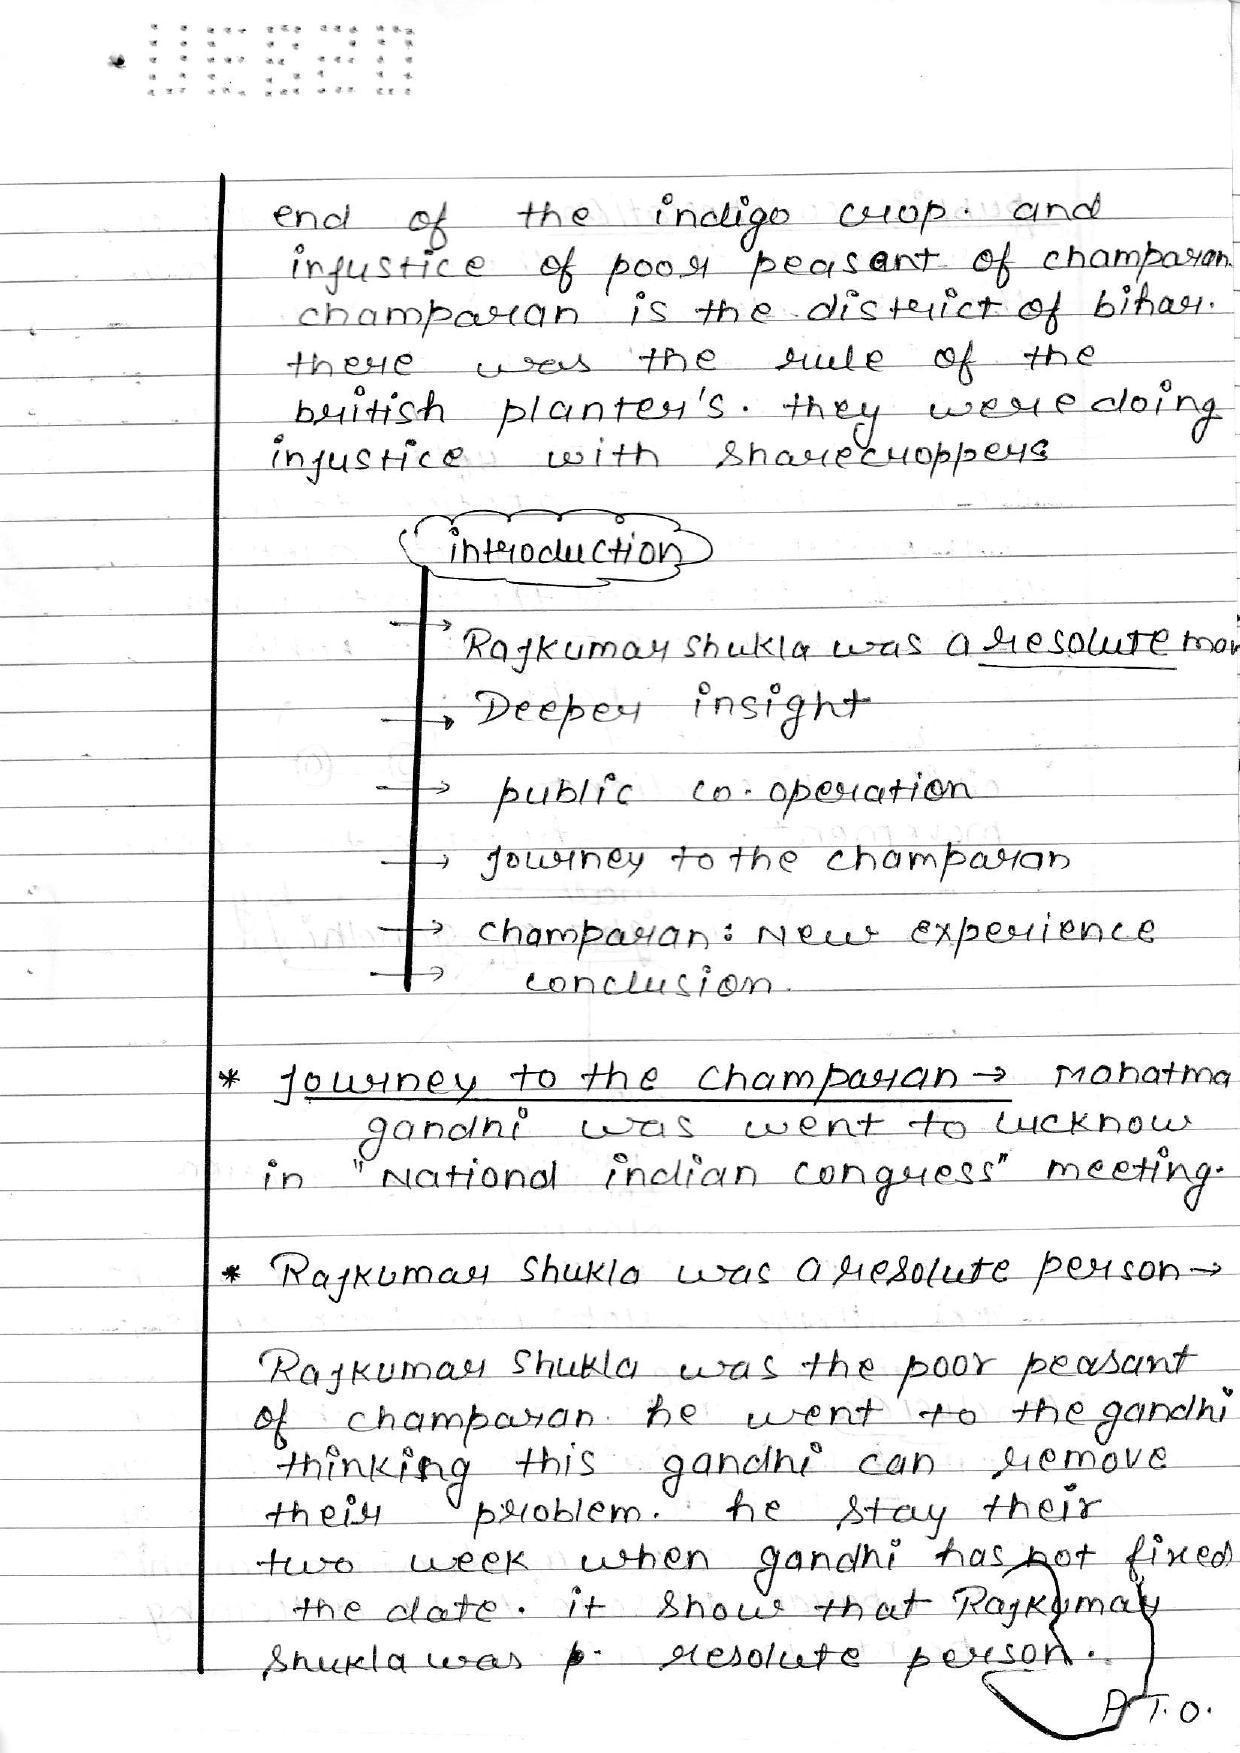 end of the indigo crop. and
injustice of poor peasant of champaran
champaran is the district of bihar.
there was the rule of the
british planter's. they were doing
injustice with sharecroppers
introduction
Rajkumar Shukla was a resolute man
Deeper insight
public co-operation
journey to the champaran
champaran: New experience
conclusion.
* Journey to the champaran → Mahatma
gandhi was went to lucknow
in "National indian congress" meeting.
* Rajkumar Shukla was a resolute person →
Rajkumar Shukla was the poor peasant
of champaran. he went to the gandhi
thinking this gandhi can remove
their problem. he stay their
two week when gandhi has not fixed
the date. it show that Rajkumar
Shukla was resolute person.
P.T.O.